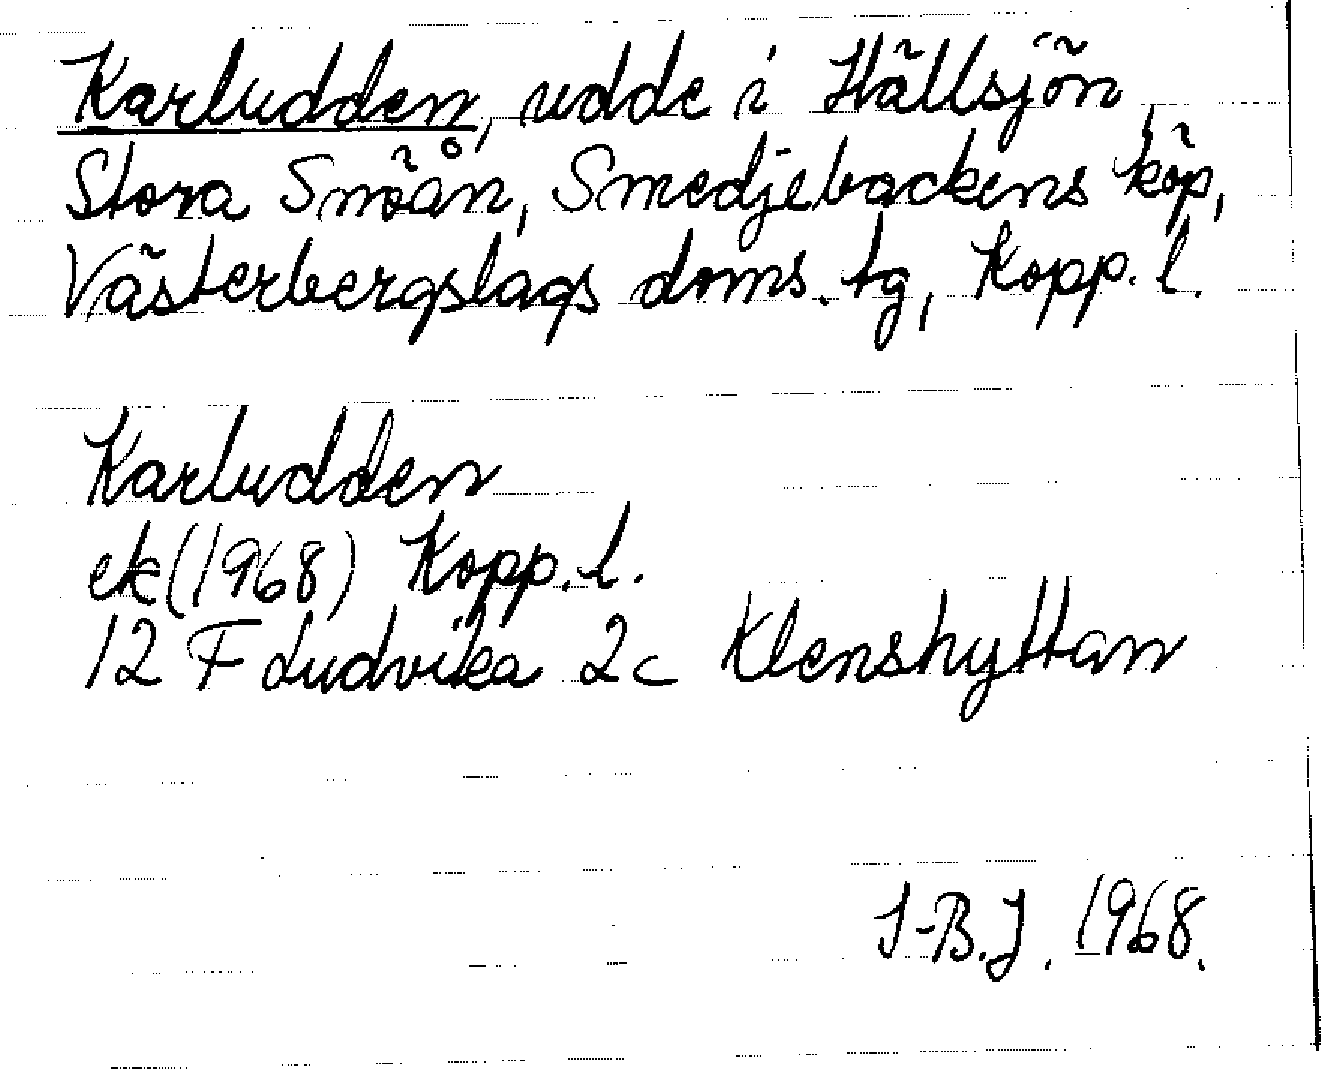 Karludden, udde i Hällsjön,
Stora Snöån, Smedjebackens köp,
Västerbergslags doms. tg, Kopp. l.
Karludden
ek (1968) Kopp. l.
12 F Ludvika 2c Klenshyttan
I-B.J. 1968.